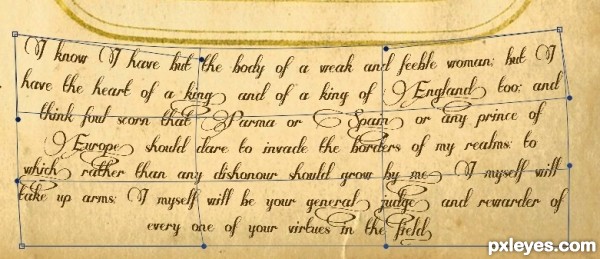 I know I have but the body of a weak and feeble woman; but I
have the heart of a king, and of a king of England, too; and
think foul scorn that Parma or Spain, or any prince of
Europe, should dare to invade the borders of my realms: to
which, rather than any dishonour should grow by me, I myself will
take up arms; I myself will be your general, judge, and rewarder of
every one of your virtues in the field.
pxleyes.com